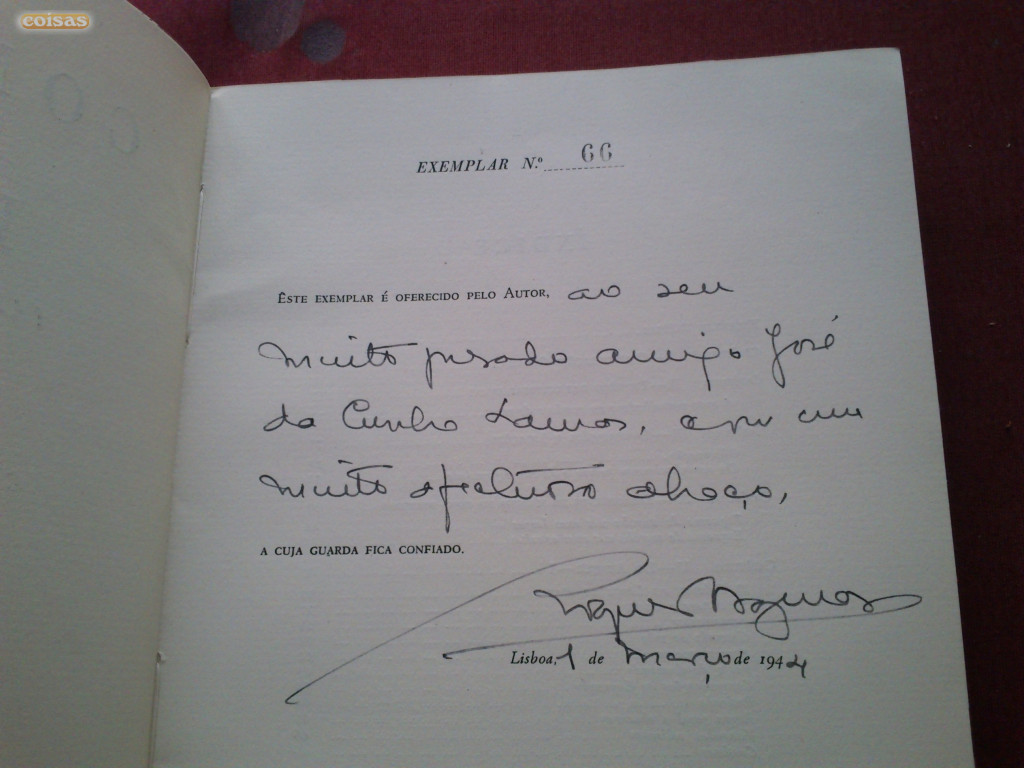 coisas
EXEMPLAR N.º 66
ÊSTE EXEMPLAR É OFERECIDO PELO AUTOR, ao seu
muito presado amigo José
da Cunha Lamas, com um
muito afectuoso abraço,
A CUJA GUARDA FICA CONFIADO.
Lisboa, 1 de Março de 1944